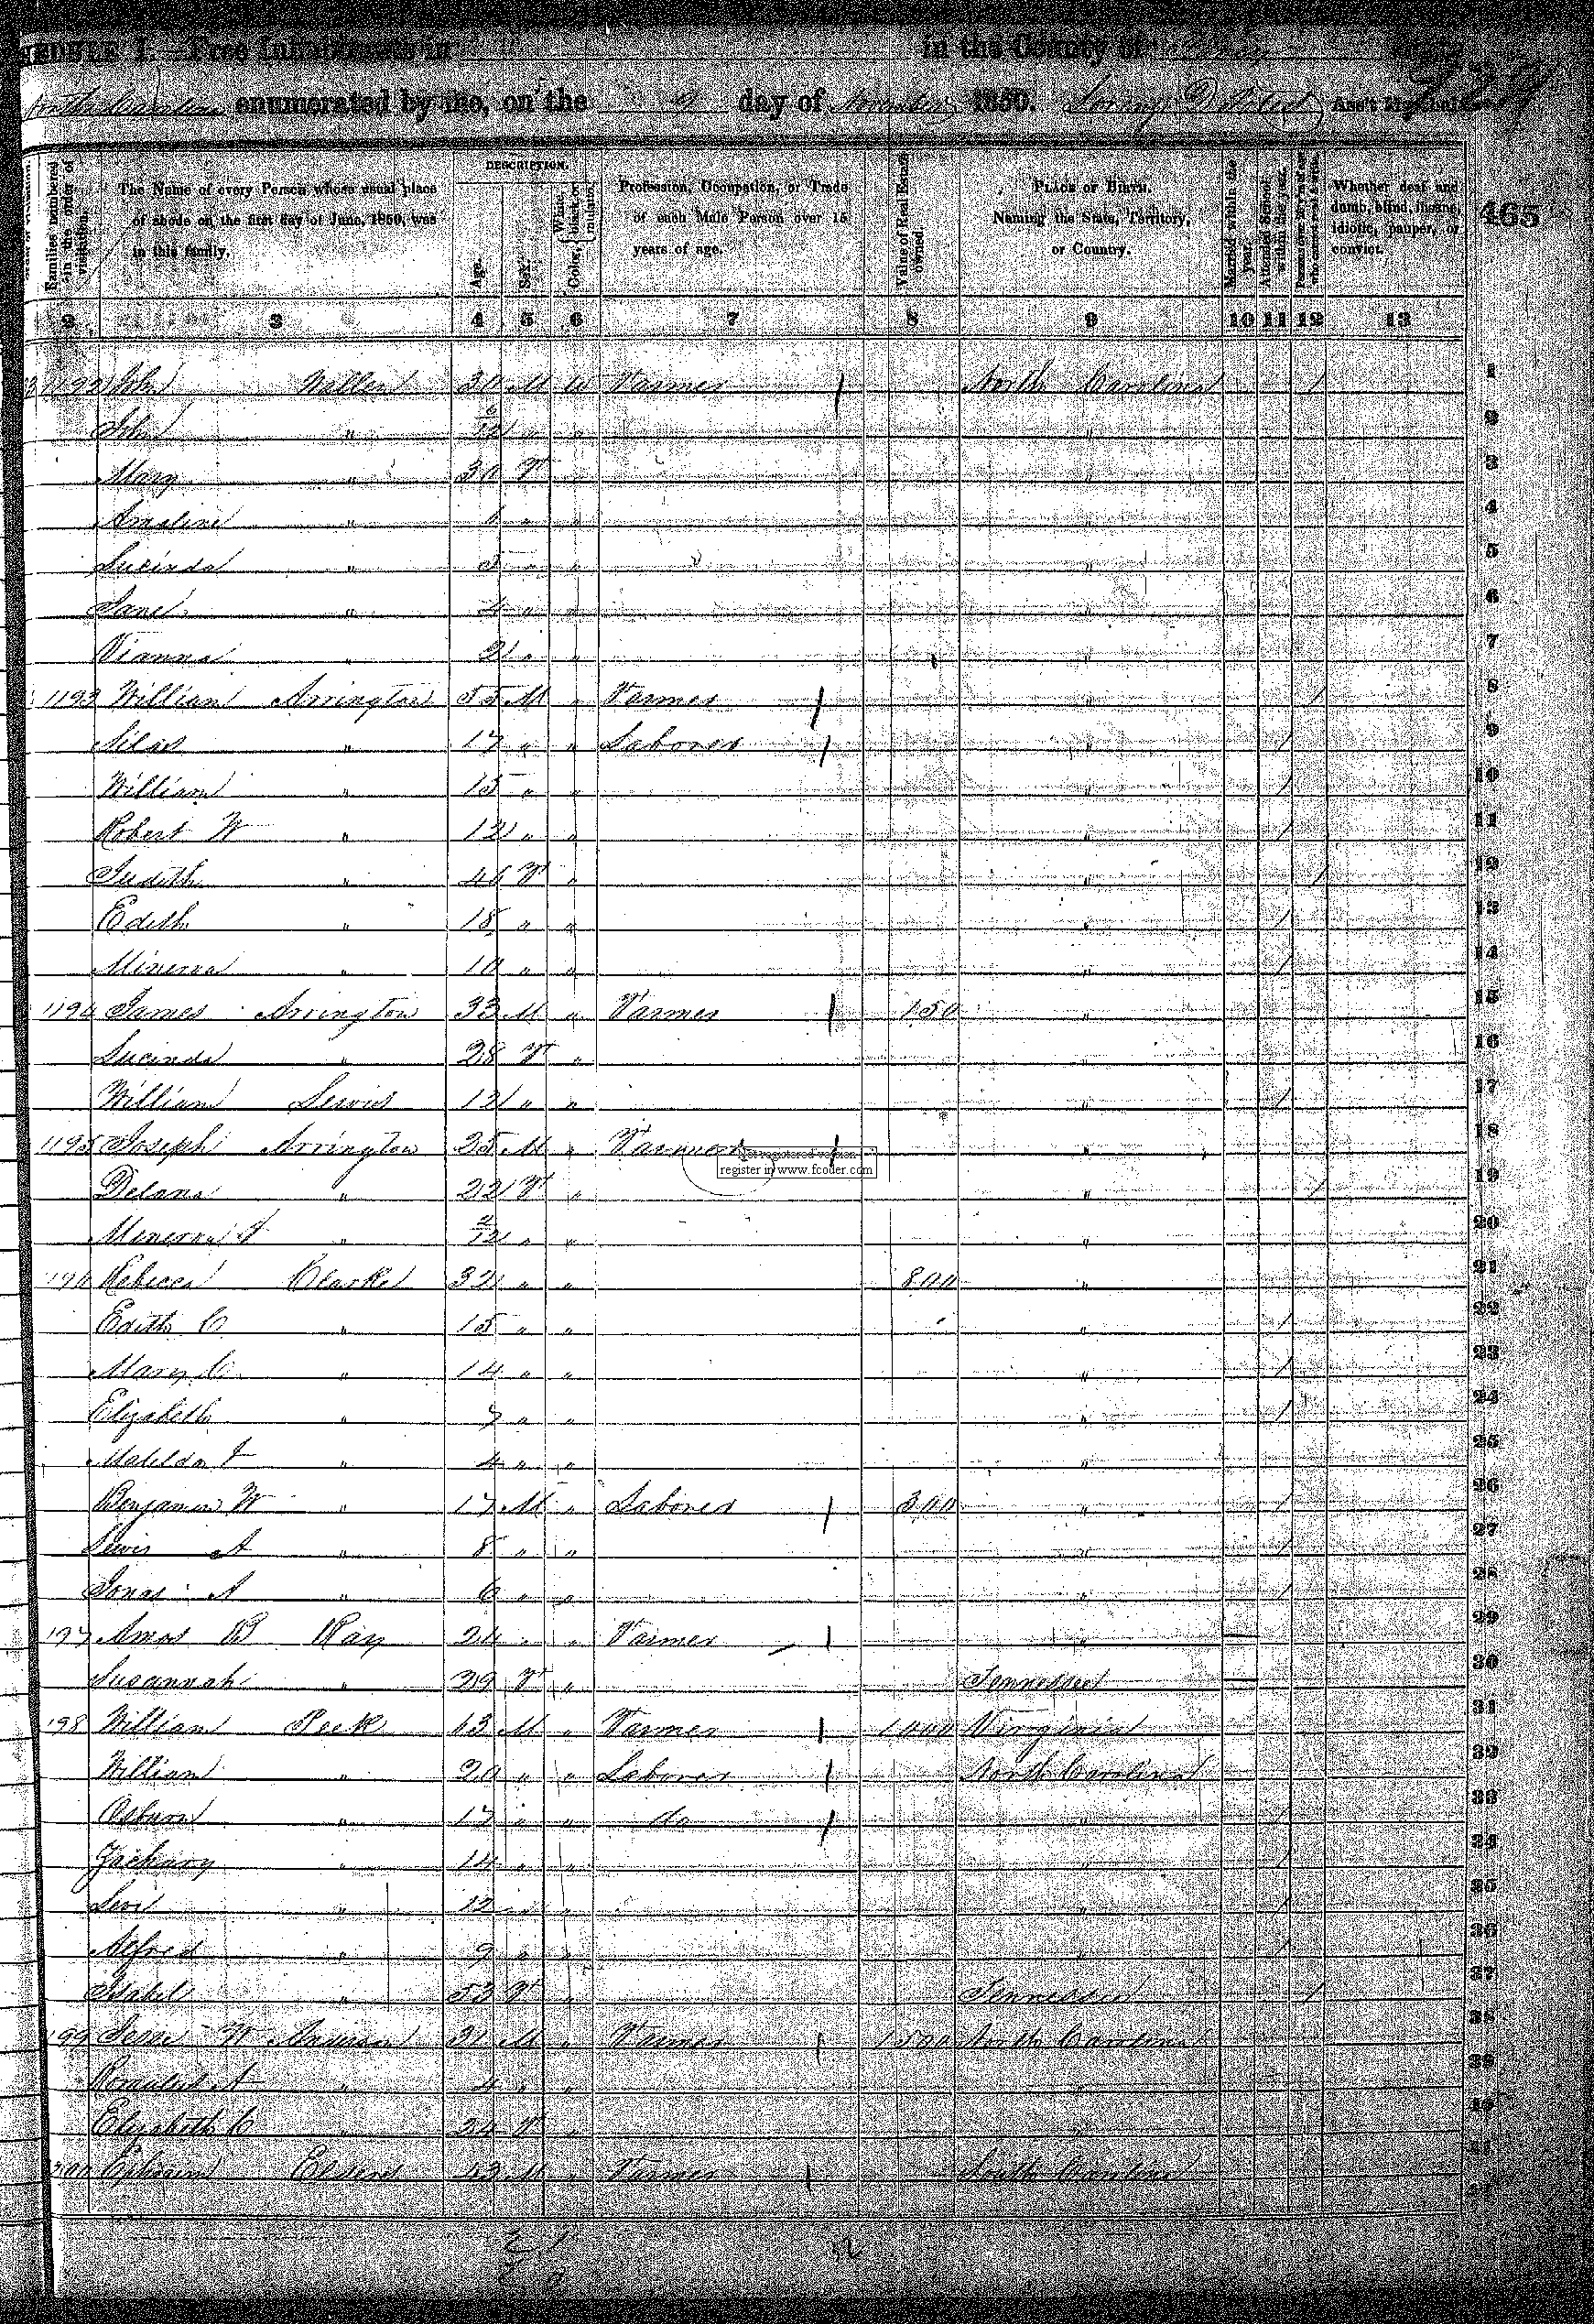 EDULE I.—Free Inhabitants in in the County of
North Carolina enumerated by me, on the 9 day of November 1850. Ass't Marshal.
Families numbered in the order of visitation.
The Name of every Person whose usual place of abode on the first day of June, 1850, was in this family.
DESCRIPTION.
Age.
Sex.
White, black, or mulatto.
Color,
Profession, Occupation, or Trade of each Male Person over 15 years of age.
Value of Real Estate owned.
PLACE OF BIRTH. Naming the State, Territory, or Country.
Married within the year.
Attended School within the year.
Persons over 20 y'rs of age who cannot read & write.
Whether deaf and dumb, blind, insane, idiotic, pauper, or convict.
465
2 3 4 5 6 7 8 9 10 11 12 13
1192 John Wallen 30 M W Farmer / North Carolina / 1
John " 6/12 " " " 2
Mary " 30 F " 3
Amaline " " " " 4
Lucinda " 5 " " " 5
Jane " 4 " " " 6
Vianna " 2 " " " 7
1193 William Arrington 55 M " Farmer / " / 8
Silas " 17 " " Laborer / " / 9
William " 15 " " " / 10
Robert W " 12 " " " / 11
Judith " 46 F " " / 12
Edith " 18 " " " / 13
Minerva " 10 " " " / 14
1194 James Arrington 33 M " Farmer / 150 " 15
Lucinda " 28 F " " 16
William Lewis 12 " " " / 17
1195 Joseph Arrington 25 M " Farmer / " 18
Not registered version
register in www.fcoder.com
Delana " 22 F " " / 19
Minerva " 2/12 " " " 20
1196 Rebecca Clarke 32 " " 800 " 21
Edith C " 15 " " " / 22
Mary C " 14 " " " / 23
Elizabeth " 7 " " " / 24
Matilda " 4 " " " 25
Benjamin W " 17 M " Laborer / 300 " / 26
Lewis A " 8 " " " / 27
Jonas A " 6 " " " / 28
197 Amos B Ray 24 " " Farmer / " 29
Susannah " 29 F " Tennessee 30
198 William Peek 63 M " Farmer / 1000 Virginia 31
William " 20 " " Laborer / North Carolina 32
Osburn " 17 " " do / " / 33
Zachary " 14 " " " / 34
Levi " 12 " " " / 35
Alfred " 9 " " " / 36
" 53 F " Tennessee / 37
199 Jesse W Anderson 31 M " Farmer / North Carolina 38
A " 4 " " 39
Elizabeth C " 24 F " 40
Elders 43 M " Farmer / South Carolina 41
42